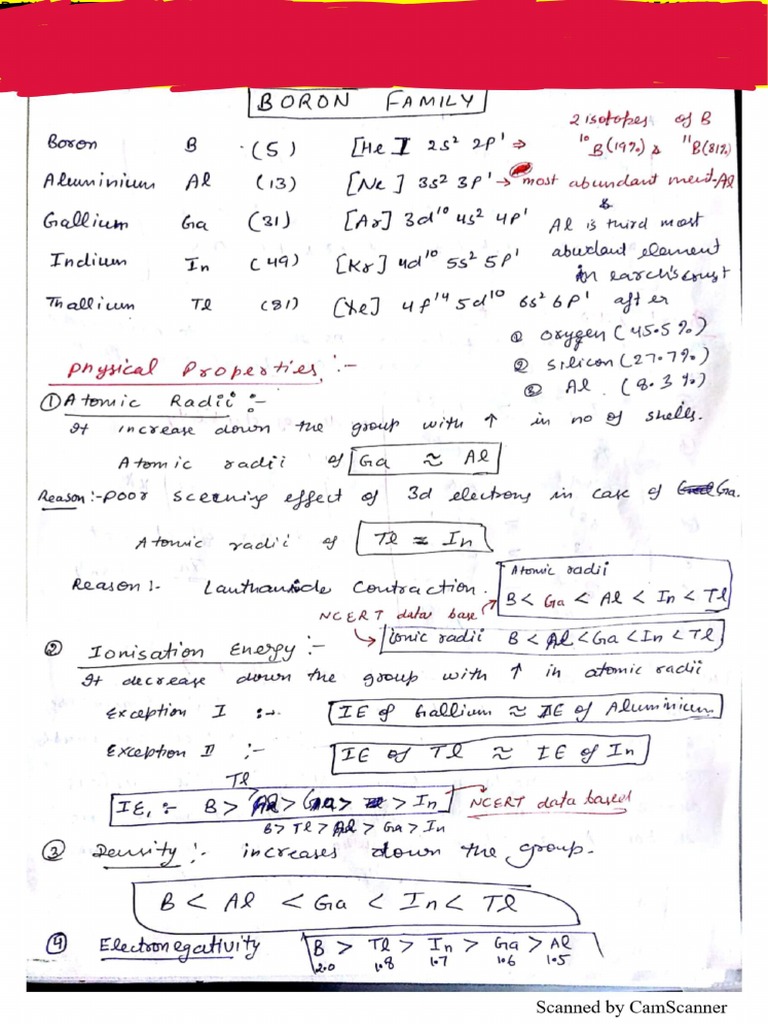 BORON FAMILY
2 isotopes of B
Boron B (5) [He] 2s² 2p¹ ⇒ ¹⁰B(19%) & ¹¹B(81%)
Aluminium Al (13) [Ne] 3s² 3p¹ → most abundant metal-Al
&
Gallium Ga (31) [Ar] 3d¹⁰ 4s² 4p¹ Al is third most
abundant element
Indium In (49) [Kr] 4d¹⁰ 5s² 5p¹ in earth's crust
Thallium Tl (81) [Xe] 4f¹⁴ 5d¹⁰ 6s² 6p¹ after
① oxygen (45.5%)
② silicon (27.7%)
③ Al (8.3%)
Physical Properties :-
① Atomic Radii :-
It increase down the group with ↑ in no of shells.
Atomic radii of Ga ≈ Al
Reason :- poor sceening effect of 3d electrons in case of Ga.
Atomic radii of Tl ≈ In
Reason :- Lanthanide Contraction.
Atomic radii
B < Ga < Al < In < Tl
NCERT data base
ionic radii B < Al < Ga < In < Tl
② Ionisation Energy :-
It decrease down the group with ↑ in atomic radii
Exception I :- IE of Gallium ≈ IE of Aluminium
Exception II :- IE of Tl ≈ IE of In
Tl
IE₁ :- B > Al > Ga > > In NCERT data based
B > Tl > Al > Ga > In
③ Density :- increases down the group.
B < Al < Ga < In < Tl
④ Electronegativity B > Tl > In > Ga > Al
2.0 1.8 1.7 1.6 1.5
Scanned by CamScanner